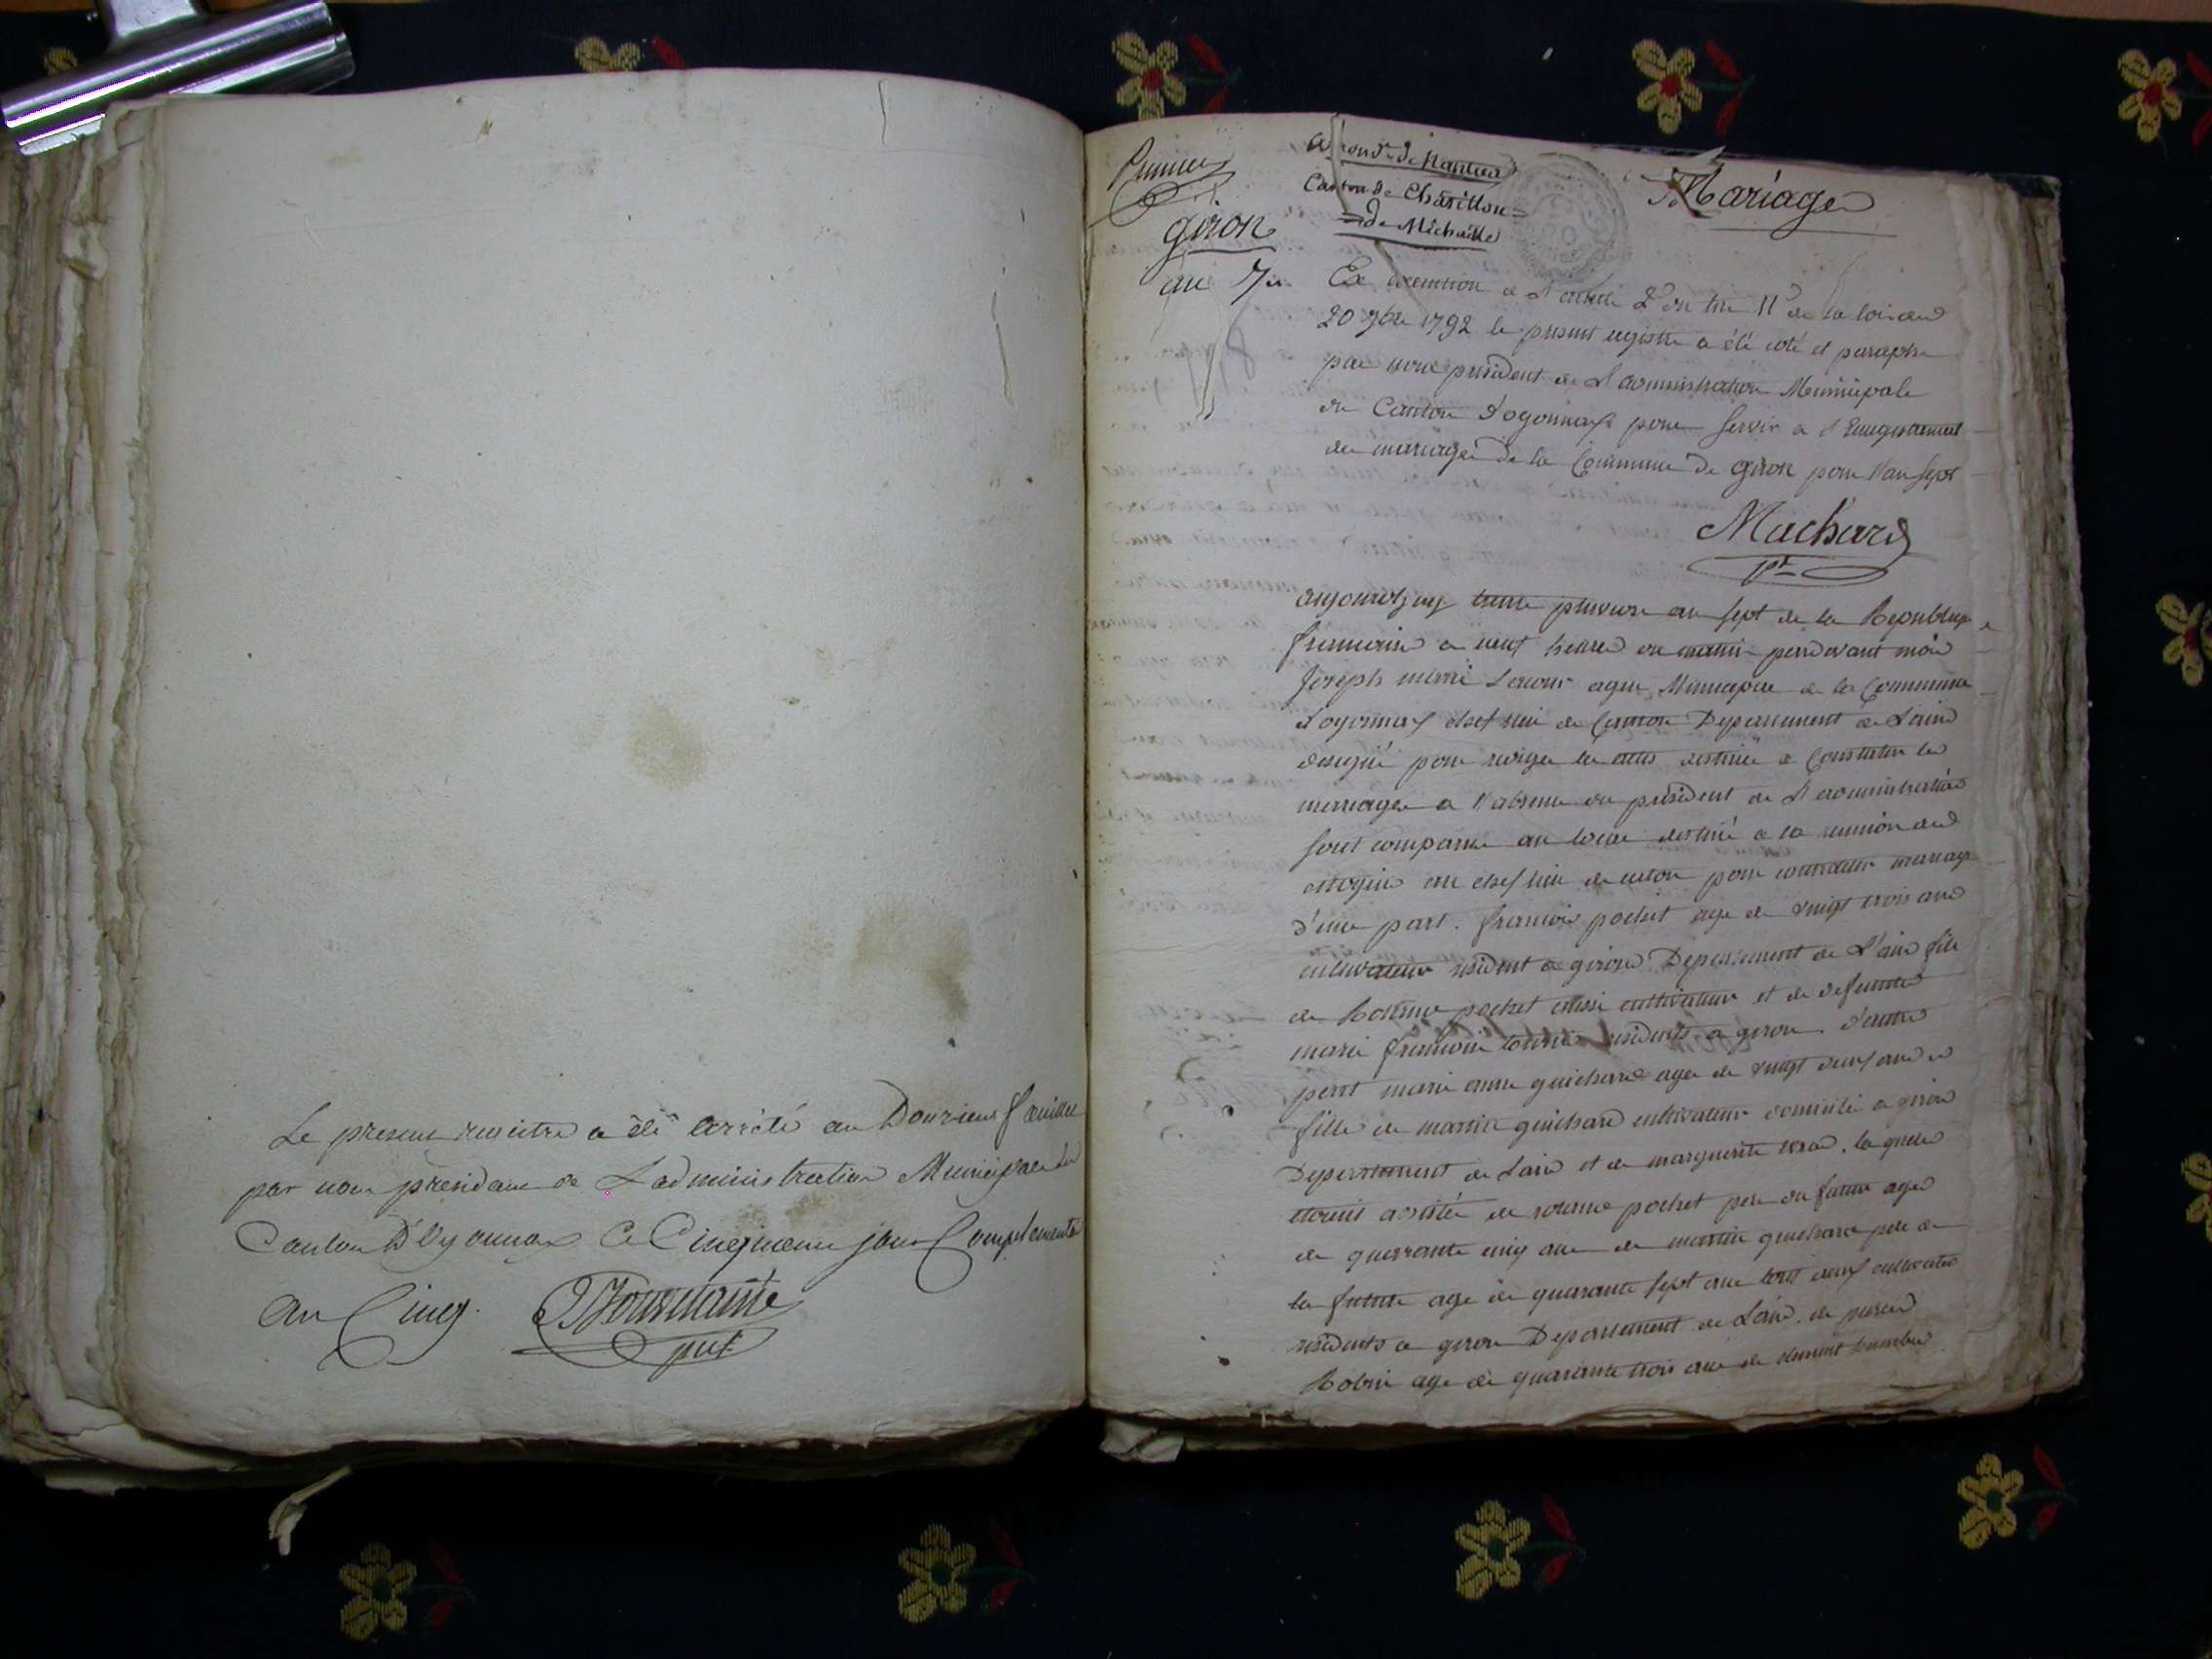 Le present registre a été arrêté au Douzieme feuillet
par nous president de L'administration Municipale du
Canton D'Oyonnax Ce Cinquieme jour Complementaire
an Cinq.
pnt
Premier
giron
an 7e
arrondt de Nantua
Canton de Chatillon
de Michaille
Mariage
En execution de l'article 2 du titre 11 de la loi du
20 7bre 1792 le present registre a été coté et paraphé
par nous president de L'administration Municipale
du Canton d'ogonnax pour servir a l'Enregistrement
des mariages de la Commune de giron pour l'an sept
Machard
pt
aujourdhuy trente pluviose an sept de la Republique
francaise a neuf heures du matin pardevant moi
Joseph marie agent Municipal de la Commune
d'oyonnax chef lieu de Canton Departement de Lain
designé pour rediger les actes destinés a Constater les
mariages a l'absence du president de L'administration
sont comparus au local destiné a la reunion des
citoyens au chef lieu de canton pour contracter mariage
d'une part. francois pochet age de vingt trois ans
cultivateur resident a giron Departement de L'ain fils
de pochet aussi cultivateur et de defunte
marie francoise residents a giron. d'autre
part marie anne guichard agee de vingt deux ans
fille de martin guichard cultivateur domicilié a giron
Departement de Lain et de marguerite . les quels
etoient assistés de pochet pere du futur age
de quarante cinq ans de martin guichard pere de
la future age de quarante sept ans tous deux cultivateurs
residents a giron Departement de Lain. de
Robin age de quarante trois ans de clement